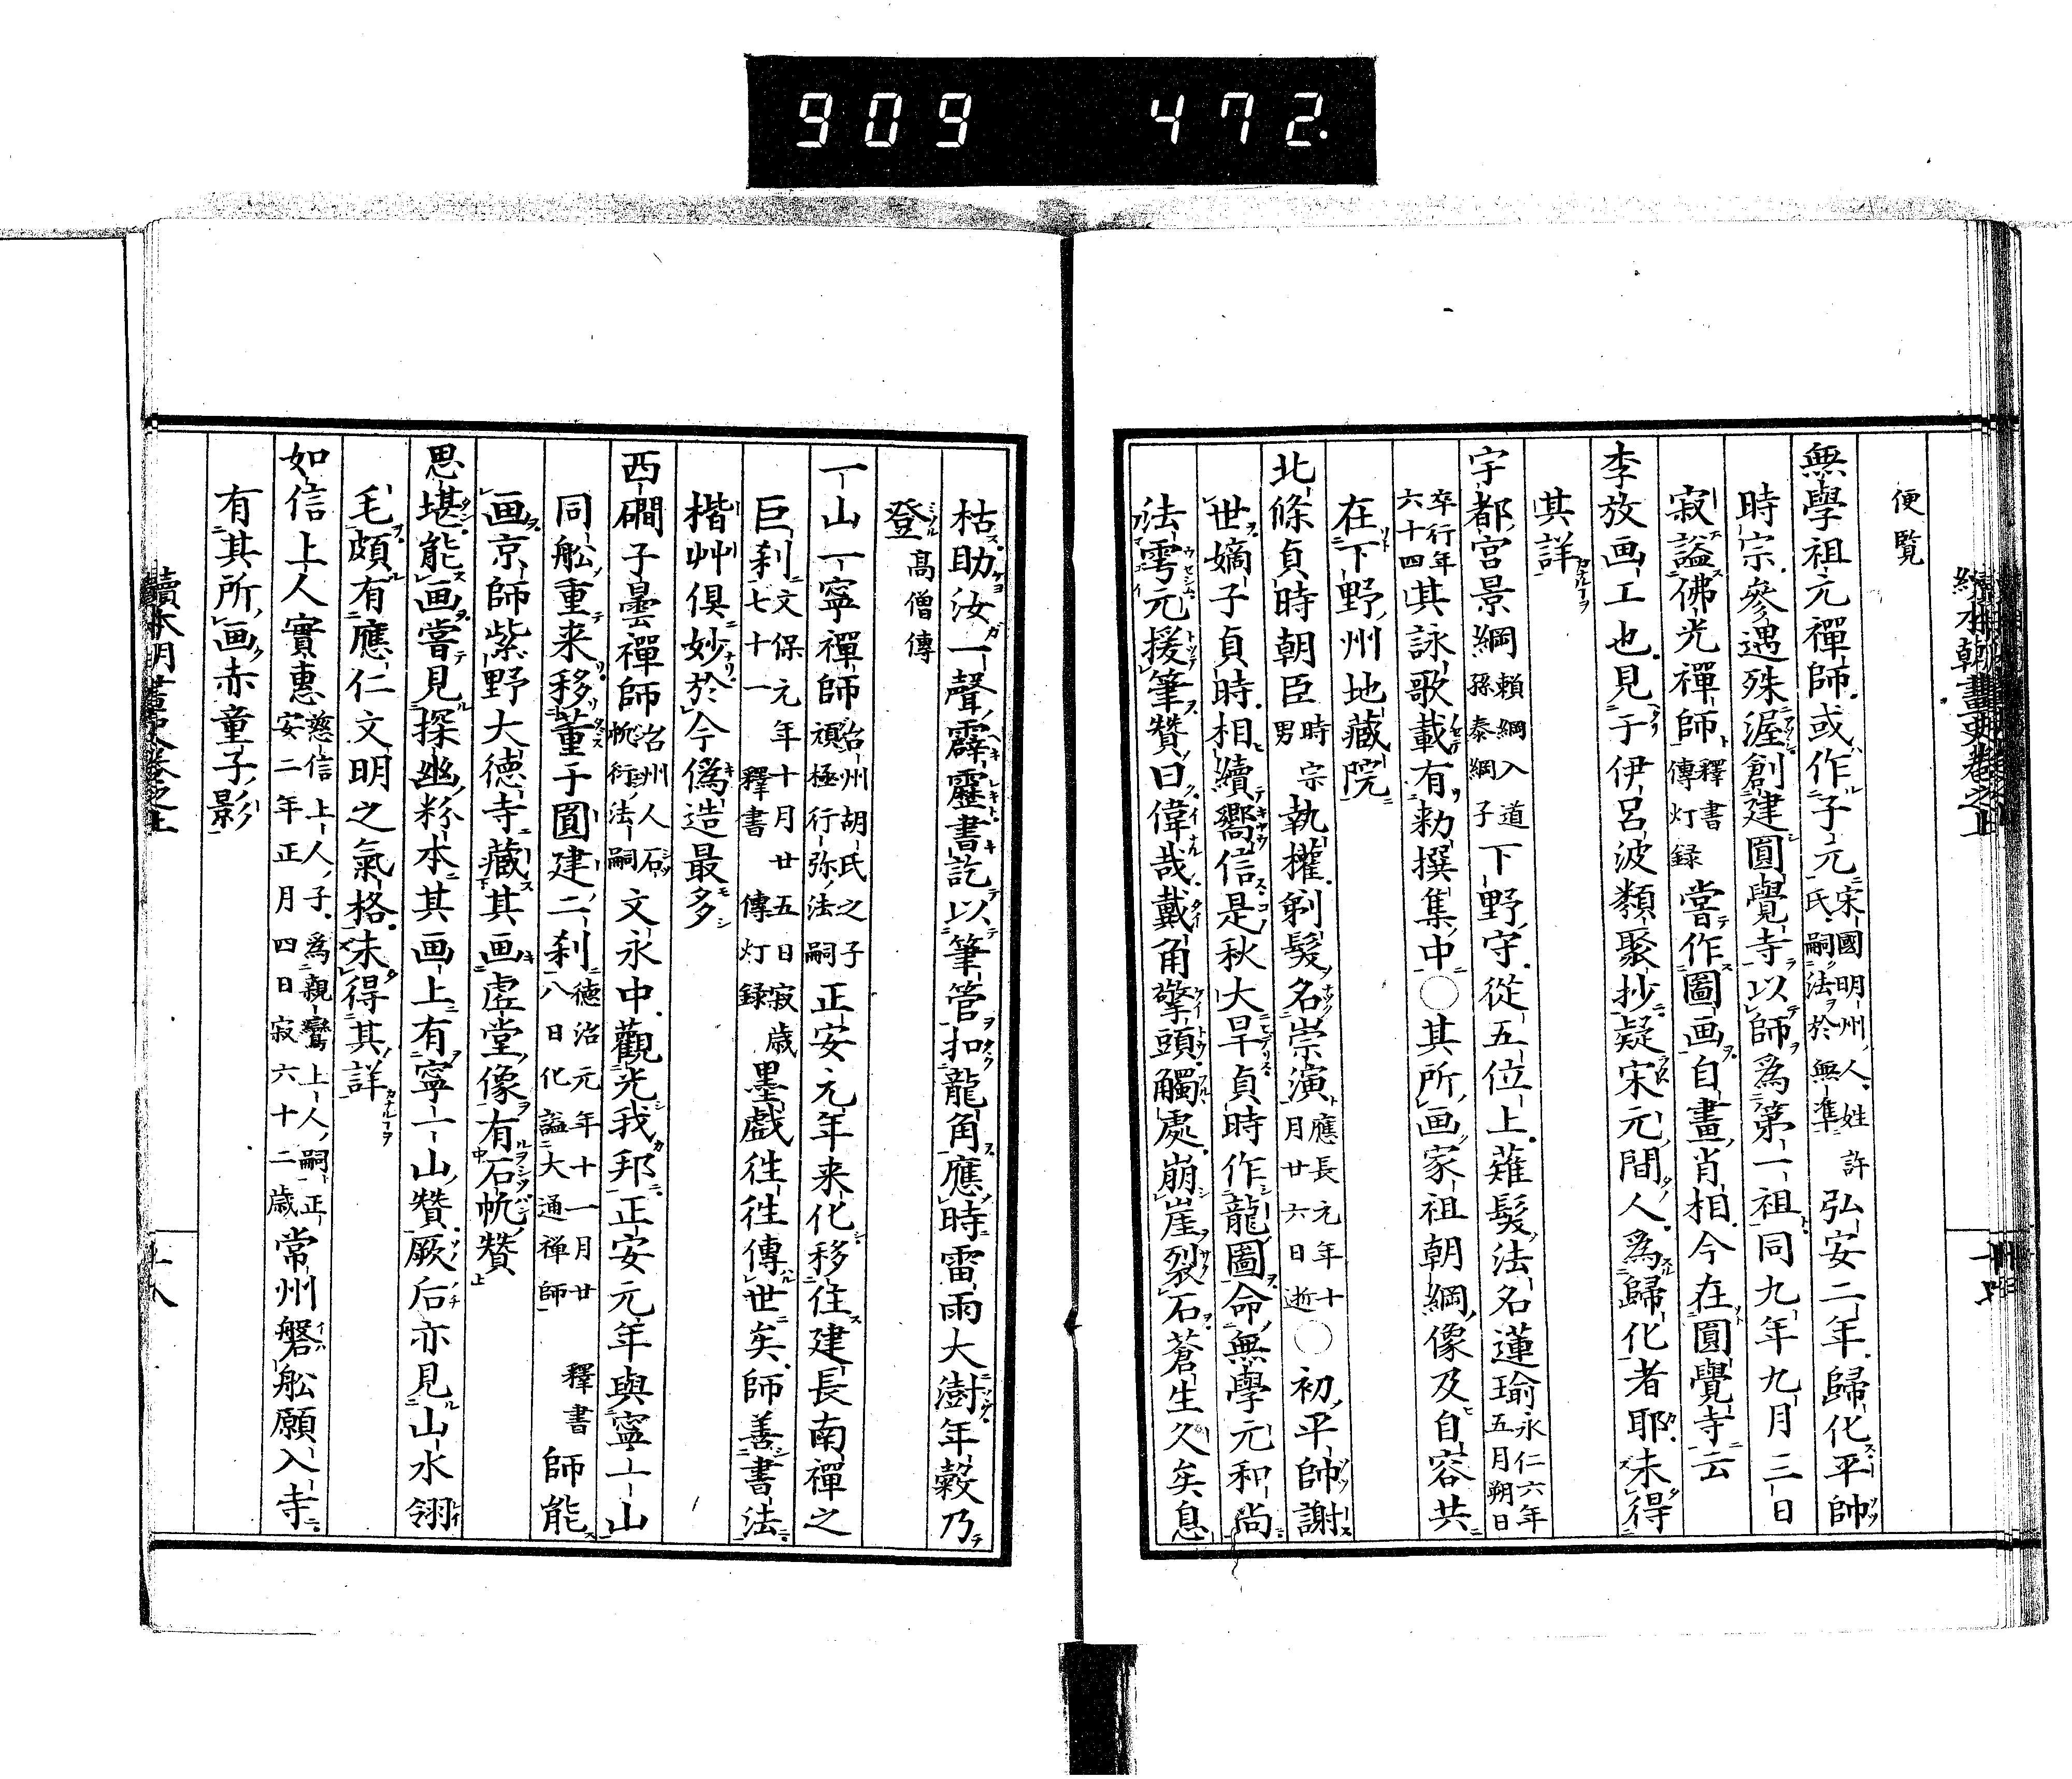 909 472.
續本朝畫史卷之上
便覧
無學祖元禪師或作子元宋國明州人姓許氏嗣法於無準弘安二年歸化平帥
時宗參遇殊渥創建圓覺寺以師爲第一祖同九年九月三日
寂謚佛光禪師釋書傳灯録嘗作圖画自畫肖相今在圓覺寺云
李放画工也見于伊呂波類聚抄疑宋元間人爲歸化者耶未得
其詳
宇都宮景綱頼綱入道孫泰綱子下野守從五位上薙髮法名蓮瑜永仁六年五月朔日
卒行年六十四其詠歌載有勑撰集中○其所画家祖朝綱像及自容共
在下野州地藏院
北條貞時朝臣時宗男執權剃髮名崇演應長元年十月廿六日逝○初平帥謝
世嫡子貞時相續嚮信是秋大旱貞時作龍圖命無學元和尚
法雩元援筆賛曰偉哉戴角擎頭觸處崩崖裂石蒼生久矣息
枯助汝一聲霹靂書訖以筆管扣龍角應時雷雨大澍年穀乃
登高僧傳
一山一寧禪師台州胡氏之子頑極行弥法嗣正安元年来化移住建長南禪之
巨刹文保元年十月廿五日寂歳七十一釋書傳灯録墨戯徃徃傳世矣師善書法
楷艸倶妙於今偽造最多
西磵子曇禪師台州人石帆衍法嗣文永中觀光我邦正安元年與寧一山
同舩重来移董于圓建二刹徳治元年十一月廿八日化謚大通禅師釋書師能
画京師紫野大徳寺藏其画虚堂像有石帆賛
思堪能画嘗見探幽粉本其画上有寧一山賛厥后亦見山水翎
毛頗有應仁文明之氣格未得其詳
如信上人實惠慈信上人子爲親鸞上人嗣正安二年正月四日寂六十二歳常州磐舩願入寺
有其所画赤童子影